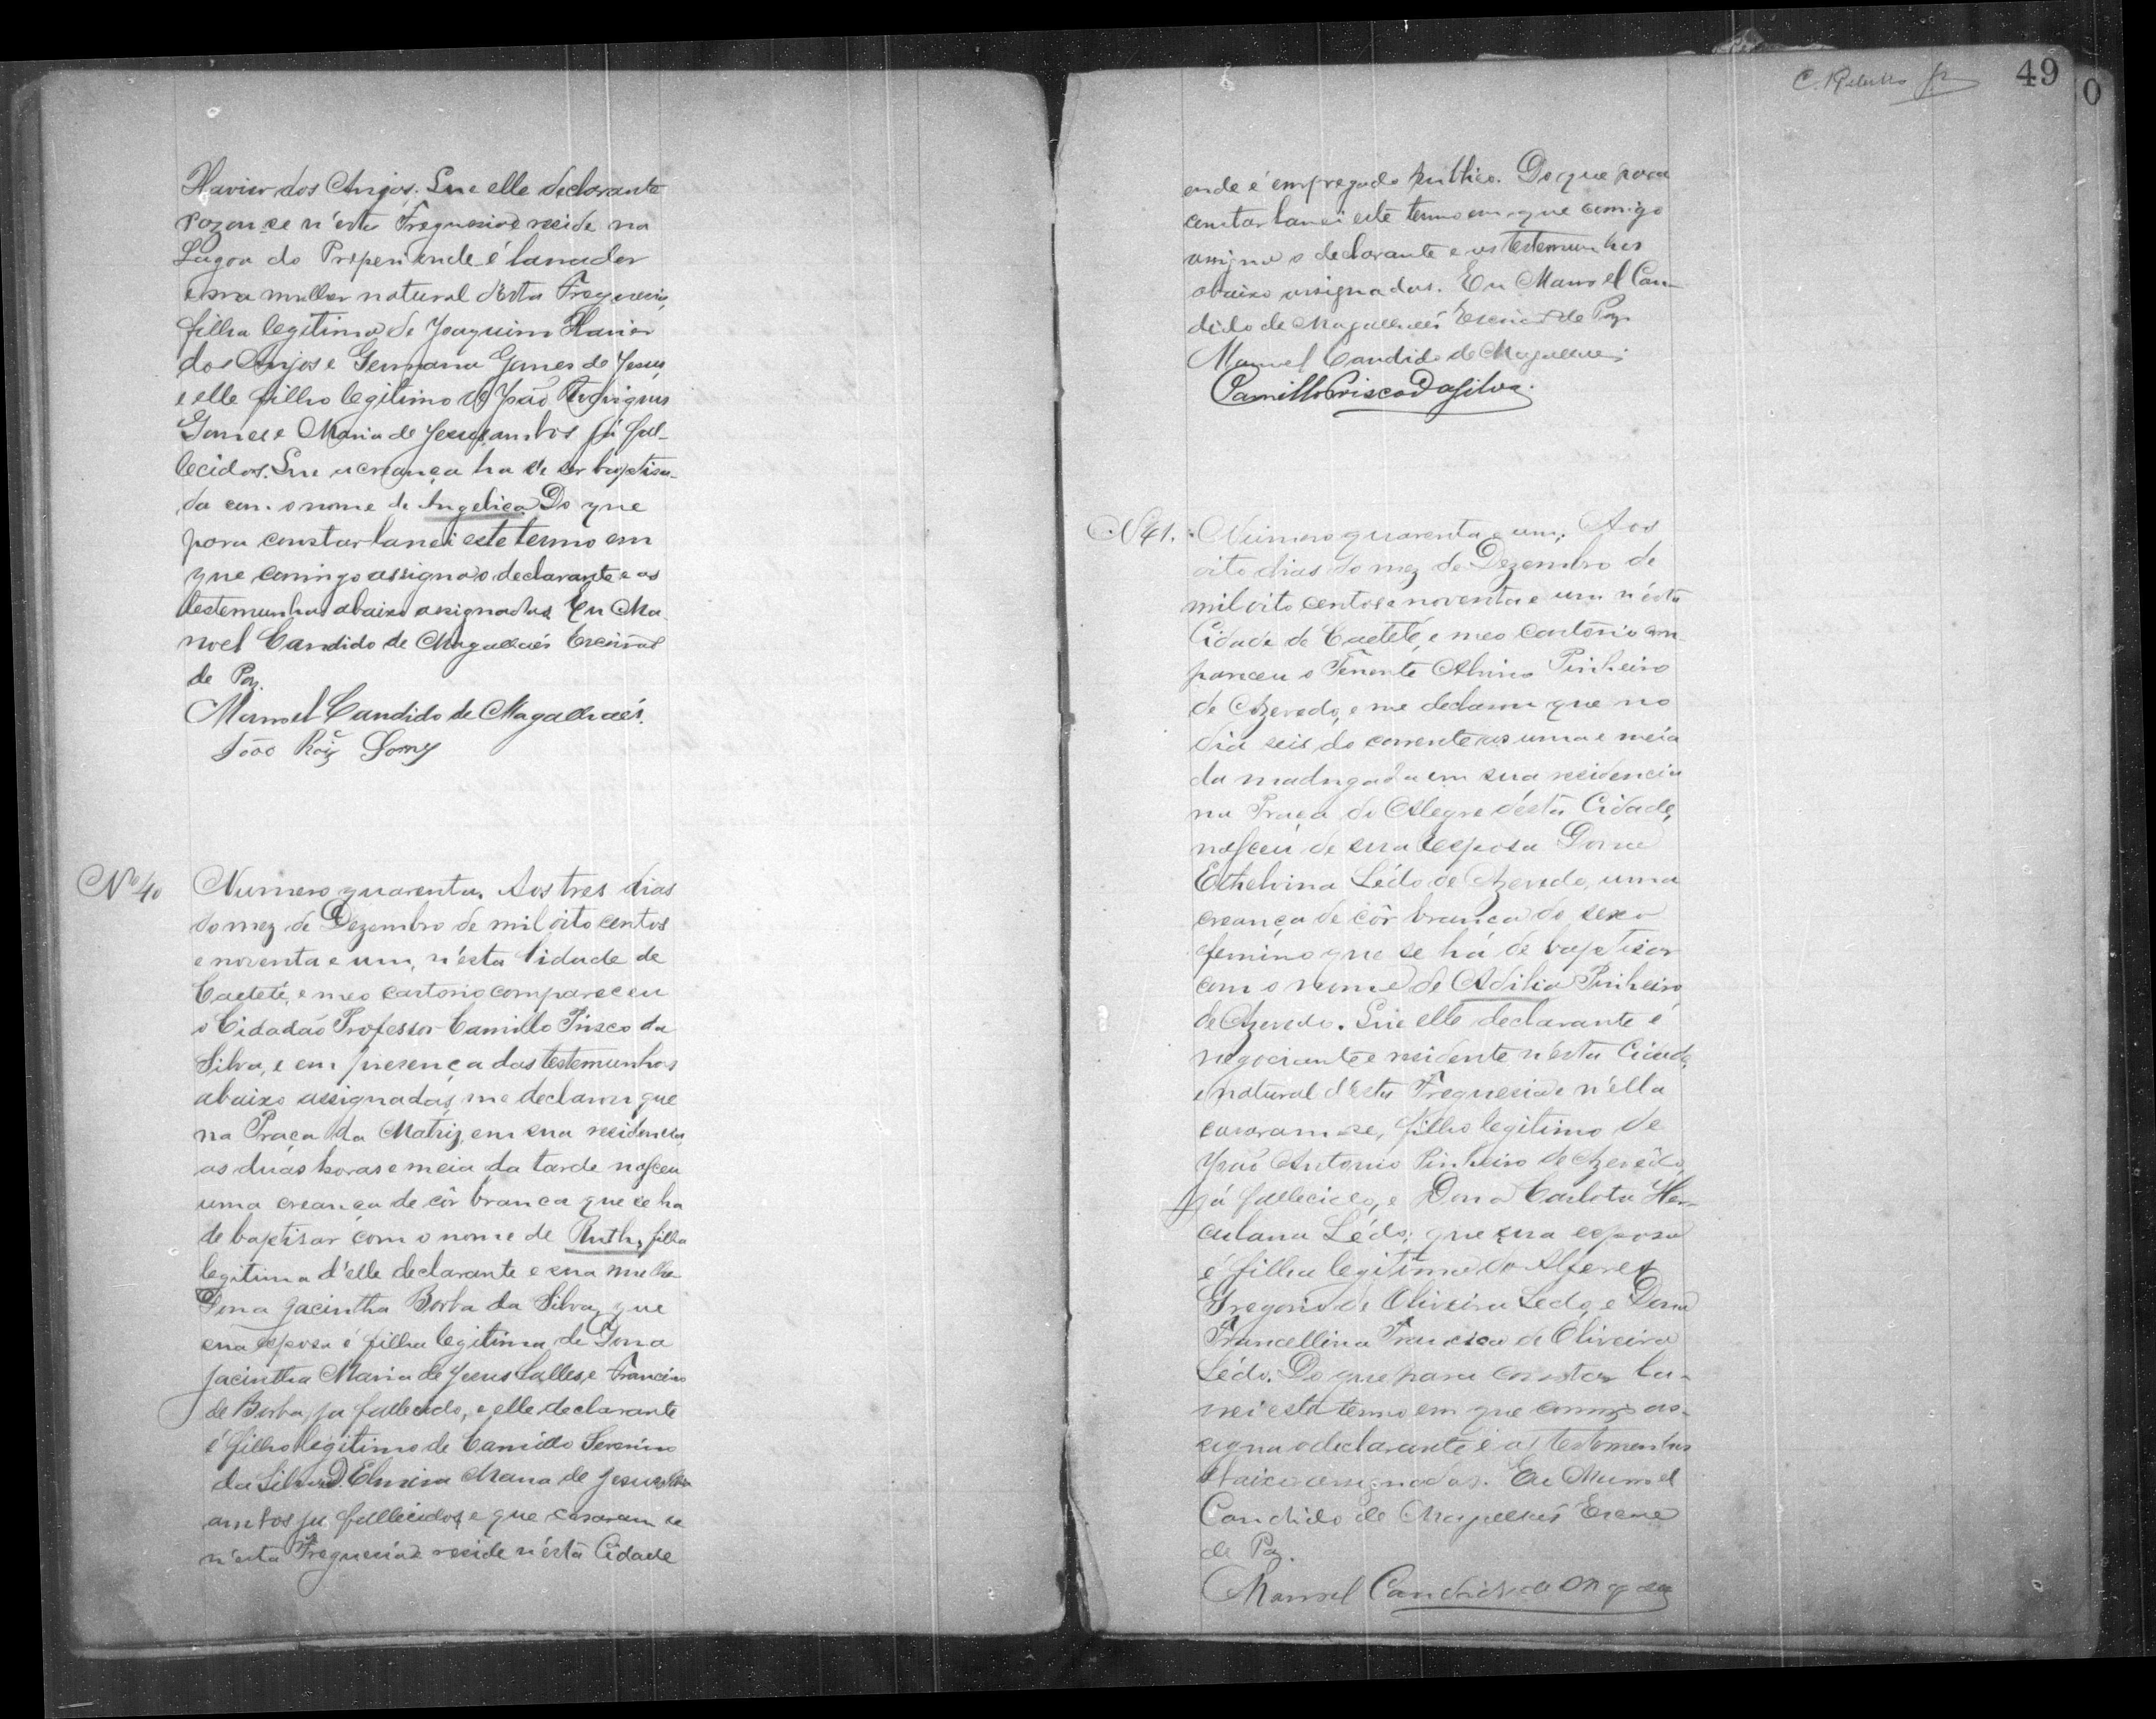 Xavier dos Anjos. Que elle declarante
cazou-se n'esta Freguesia e reside na
Lagoa do Periperi onde é lavrador
e sua mulher natural d'esta Freguesia,
filha legitima de Joaquim Xavier
dos Anjos e Germana Gomes de Jesus,
e elle filho legitimo de João Rodrigues
Gomes e Maria de Jesus, ambos já fal-
lecidos. Que a creança ha de ser baptisa-
da com o nome de Angelica. Do que
para constar lancei este termo em
que comigo assigna o declarante e as
testemunhas abaixo assignadas. Eu Ma-
noel Candido de Magalhães Escrivão
de Paz.
Manoel Candido de Magalhães.
João Roiz Gomes
Nº 40 Numero quarenta. Aos tres dias
do mez de Dezembro de mil oito centos
e noventa e um, n'esta Cidade de
Caeteté, e meo cartorio compareceu
o Cidadão Professor Camillo Prisco da
Silva, e em presença das testemunhas
abaixo assignadas, me declarou que
na Praça da Matriz, em sua residencia,
as duas horas e meia da tarde nasceu
uma creança de côr branca que se ha
de baptisar com o nome de Ruth, filha
legitima d'elle declarante e sua mulher
Dona Jacintha Borba da Silva, que
sua esposa é filha legitima de Dona
Jacintha Maria de Jesus Salles, e Francisco
de Borba, já fallecido, e elle declarante
é filho legitimo de Camillo Severino
da Silva e D. Elmira Maria de Jesus
ambos já fallecidos, e que casaram se
n'esta Freguesia e reside n'esta Cidade
C. Rebello Jr 49
0
onde é empregado publico. Do que para
constar lancei este termo em que comigo
assigna o declarante e as testemunhas
abaixo assignadas. Eu Manoel Can-
dido de Magalhães Escrivão de Paz
Manoel Candido de Magalhães
Camillo Prisco Da Silva.
Nº 41. Numero quarenta e um. Aos
oito dias do mez de Dezembro de
mil oito centos e noventa e um n'esta
Cidade de Caeteté, e meo cartorio com-
pareceu o Tenente Pinheiro
de Azevedo, e me declarou que no
dia seis do corrente as uma e meia
da madrugada em sua residencia
na Praça do Alegre desta Cidade,
nasceu de sua esposa Dona
Ethelvina Lédo de Azevedo, uma
creança de côr branca do sexo
femino que se há de baptisar
com o nome de Adilia Pinheiro
de Azevedo. Que elle declarante é
negociante e residente n'esta Cidade,
e natural d'esta Freguesia e n'ella
casaram se, filho legitimo de
João Antonio Pinheiro de Azevedo,
já fallecido, e Dona Carlota Her-
culana Lédo; que sua esposa
é filha legitima do Alferes
Gregorio de Oliveira Ledo, e Dona
Francellina Francisca de Oliveira
Lédo. Do que para constar lan-
cei este termo em que comigo as-
signa o declarante e as testemunhas
abaixo assignadas. Eu Manoel
Candido de Magalhães Escrivão
de Paz.
Manoel Candido de Magalhães